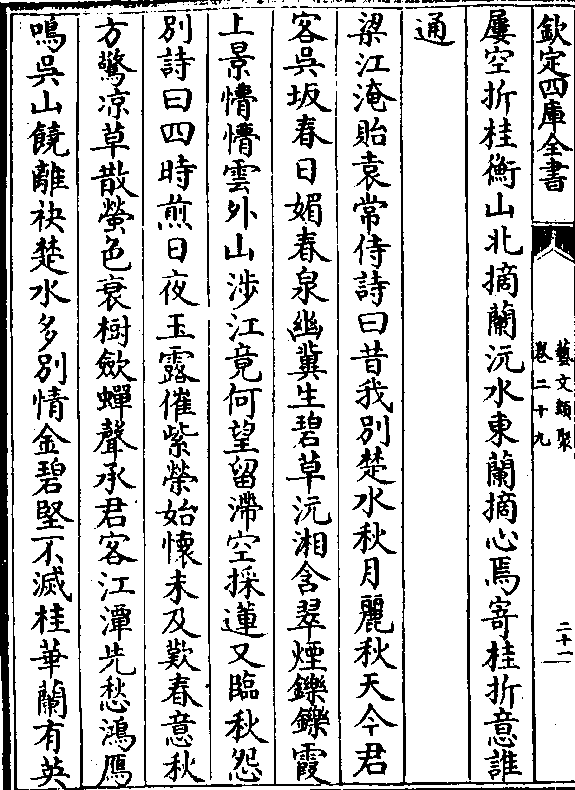 欽定四庫全書
藝文類聚
卷二十九
二十一
屢空折桂衡山北摘蘭沅水東蘭摘心焉寄桂折意誰
通
梁江淹貽袁常侍詩曰昔我别楚水秋月麗秋天今君
客吳坂春日媚春泉幽冀生碧草沅湘含翠煙鑠鑠霞
上景懵懵雲外山涉江竟何望留滯空採蓮又臨秋怨
别詩曰四時煎日夜玉露催紫榮始懷未及歎春意秋
方驚凉草散螢色衰樹歛蟬聲承君客江潭先愁鴻鴈
鳴吳山饒離袂楚水多别情金碧堅不滅桂華蘭有英